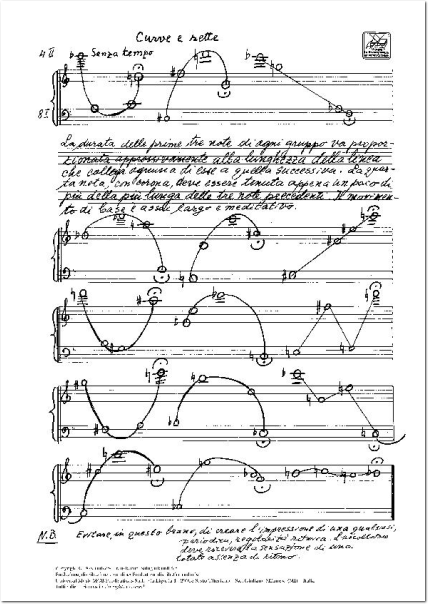 Curve e rette
4 II
Senza tempo
8 I
La durata delle prime tre note di ogni gruppo va propor-
zionata approssivamente alla lunghezza della linea
che collega ognuna di esse a quella successiva. La quar-
ta nota, con corona, deve essere tenuta appena un poco di
più della più lunga delle tre note precedenti. Il movimen-
to di base è assai largo e meditativo.
N.B.
Evitare, in questo brano, di creare l'impressione di una qualsiasi,
periodica, regolarità ritmica. L'ascoltatore
deve ricevere la sensazione di una
totale assenza di ritmo.